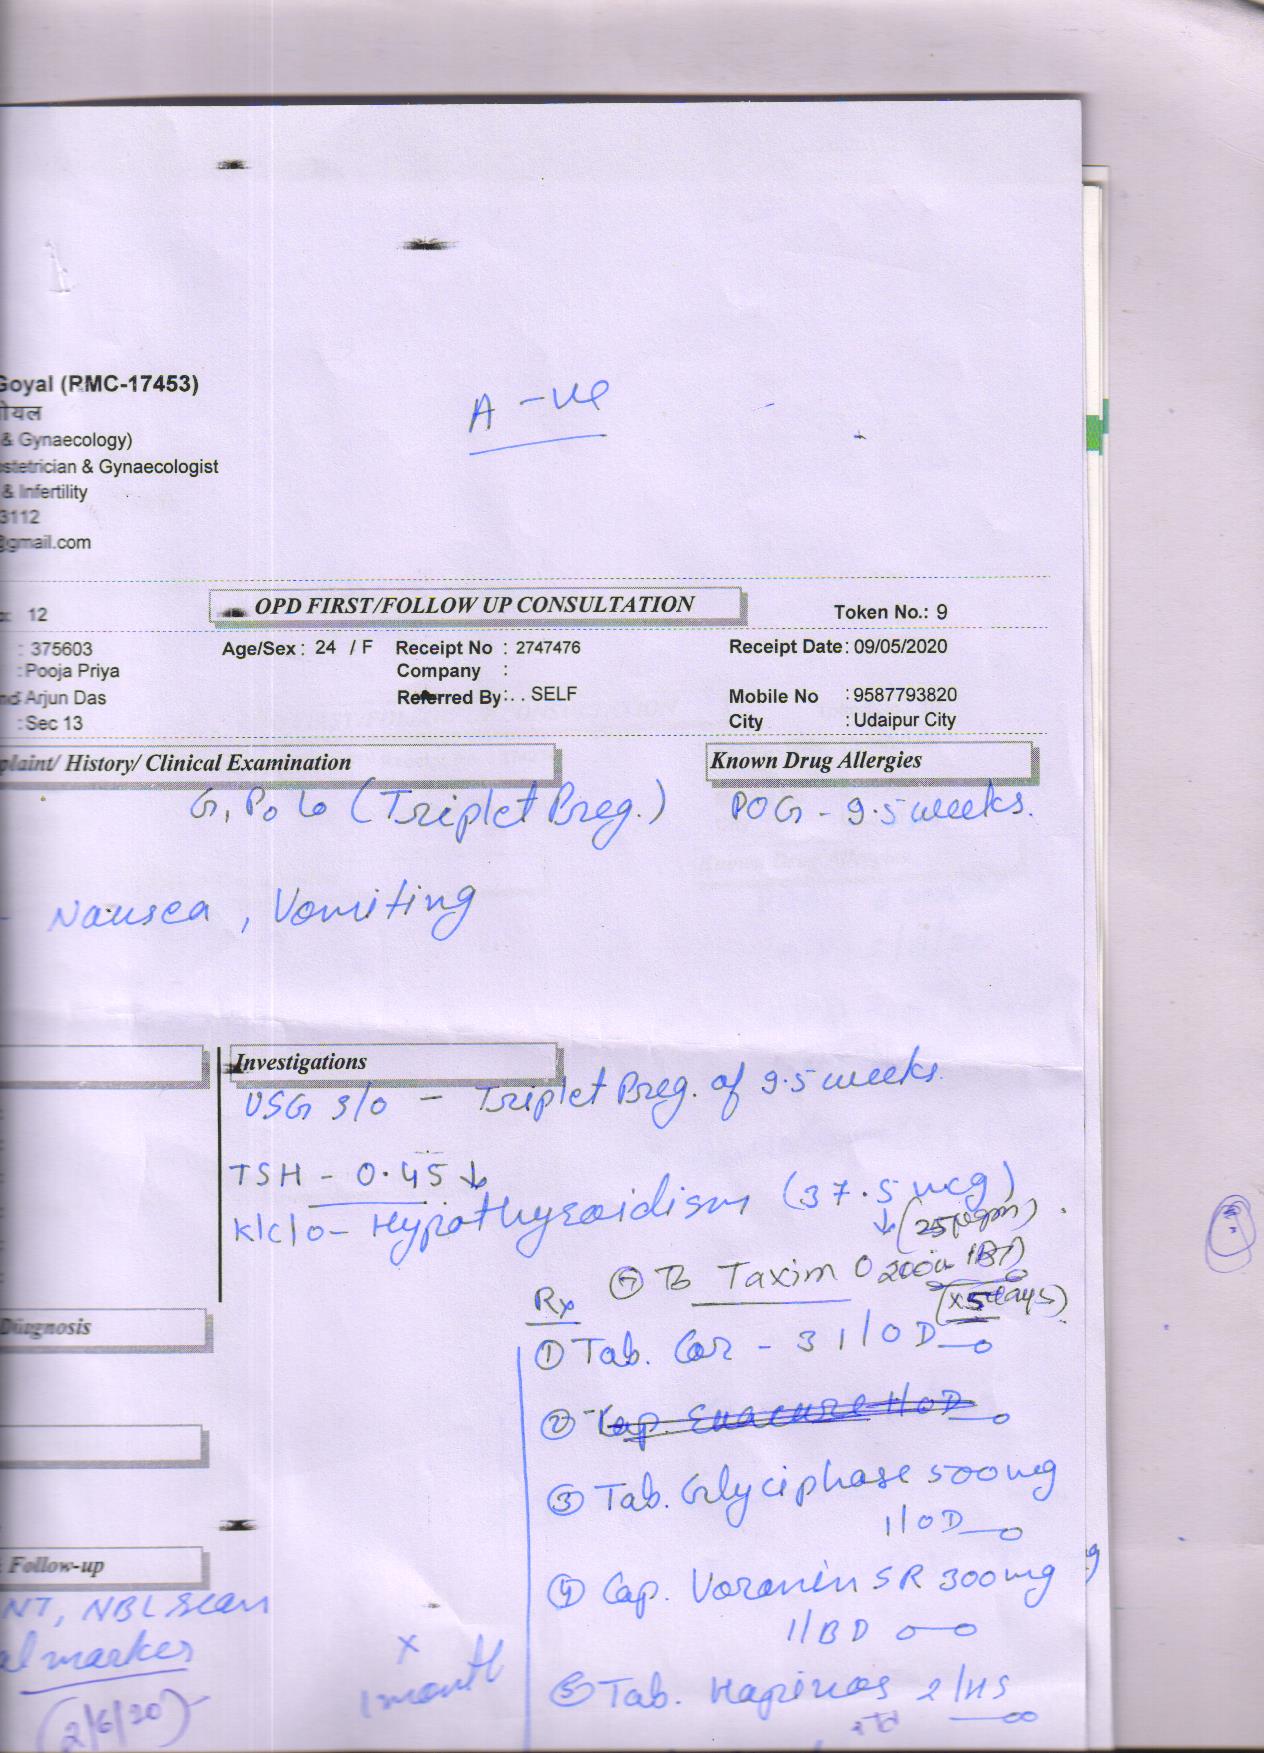 Goyal (RMC-17453)
गोयल
& Gynaecology)
A -ve
stetrician & Gynaecologist
& Infertility
3112
@gmail.com
: 12
OPD FIRST/FOLLOW UP CONSULTATION
Token No.: 9
: 375603 Age/Sex : 24 / F Receipt No : 2747476 Receipt Date: 09/05/2020
: Pooja Priya Company :
nd: Arjun Das Referred By: . . SELF Mobile No : 9587793820
: Sec 13 City : Udaipur City
plaint/ History/ Clinical Examination Known Drug Allergies
G1P0L0 (Triplet Preg.) POG - 9.5 weeks.
- Nausea, Vomiting
Investigations
USG s/o - Triplet Preg. of 9.5 weeks.
TSH - 0.45 ↓
K/c/o - Hypothyroidism (37.5 mcg)
↓ (25
⑦ Tb Taxim O 200 1BD
(x5 days)
Rx
① Tab. Cor - 3 1/OD
② Cap. Evacure 1/OD
③ Tab. Glyciphase 500mg
1/OD
④ Cap. Voranin SR 300mg
1/BD
⑤ Tab. 2/HS
Diagnosis
Follow-up
NT, NBL Scan
al marker
(2/6/20)
x
1 month